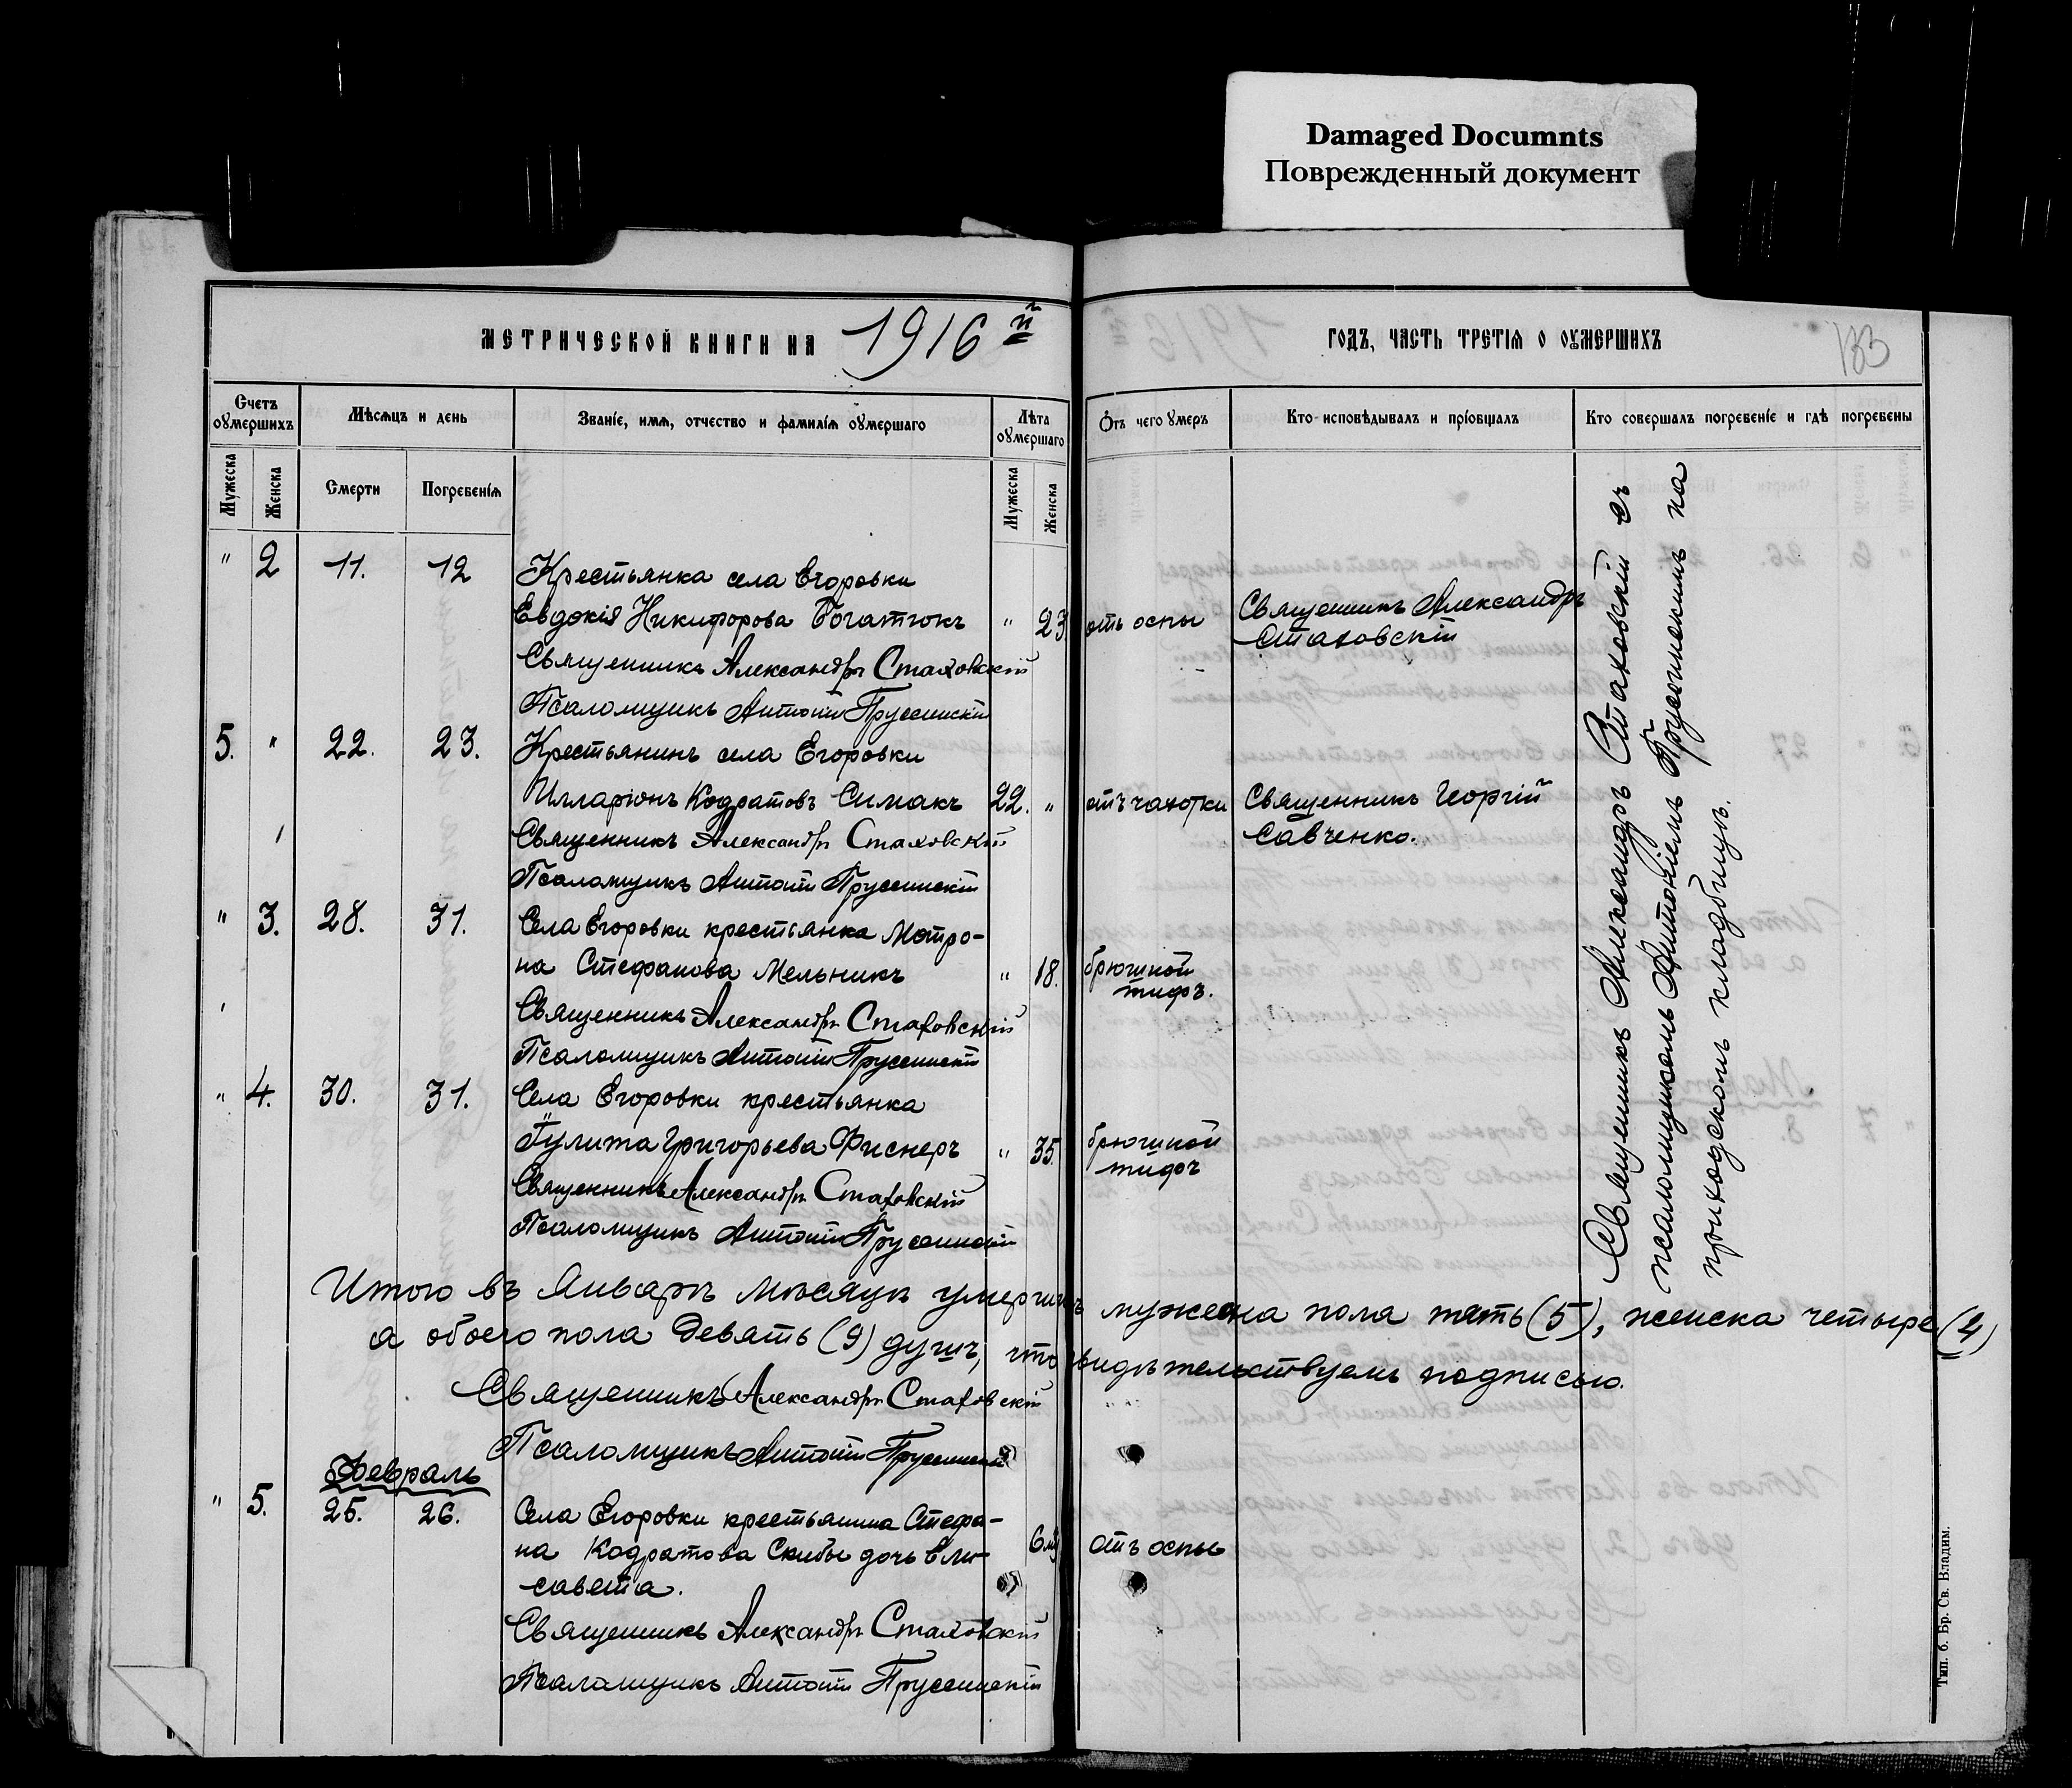 Damaged Documnts
Поврежденный документ
МЕТРИЧЕСКОЙ КНИГИ НА 1916й
ГОДЪ, ЧАСТЬ ТРЕТІЯ О ОУМЕРШИХЪ
133
Счетъ оумершихъ
Мѣсяцъ и день
Званіе, имя, отчество и фамилія оумершаго
Лѣта оумершаго
Отъ чего умеръ
Кто исповѣдывалъ и пріобщалъ
Кто совершалъ погребеніе и гдѣ погребены
Мужеска
Женска
Смерти
Погребенія
Мужеска
Женска
" 2 11. 12 Крестьянка села Егоровки
Евдокія Никифорова Богатюкъ " 23 отъ оспы Священникъ Александръ
Стаховскій
Священникъ Александръ Стаховскій
Псаломщикъ Антоній Пруссинскій
5. " 22. 23. Крестьянинъ села Егоровки
Илларіонъ Кодратовъ Симакъ 22. " отъ чахотки Священникъ Георгій
Савченко.
Священникъ Александръ Стаховскій
Псаломщикъ Антоній Пруссинскій
" 3. 28. 31. Села Егоровки крестьянка Мотро-
на Стефанова Мельникъ " 18. брюшной
тифъ.
Священникъ Александръ Стаховскій
Псаломщикъ Антоній Пруссинскій
" 4. 30. 31. Села Егоровки крестьянка
Гулита Григорьева Фиснеръ " 35. брюшной
тифъ
Священникъ Александръ Стаховскій
Псаломщикъ Антоній Пруссинскій
Священникъ Александръ Стаховскій съ
псаломщикомъ Антоніемъ Пруссинскимъ на
приходскомъ кладбищѣ.
Итого въ Январѣ мѣсяцѣ умершихъ мужеска пола пять (5), женска четыре (4)
а обоего пола девять (9) душъ, что свидѣтельствуемъ подписью.
Священникъ Александръ Стаховскій
Псаломщикъ Антоній Пруссинскій
Февраль
" 5. 25. 26. Села Егоровки крестьянина Стефа-
на Кодратова Скибы дочь Ели- 6 м отъ оспы
савета.
Священникъ Александръ Стаховскій
Псаломщикъ Антоній Пруссинскій
Тип. б. Бр. Св. Владим.